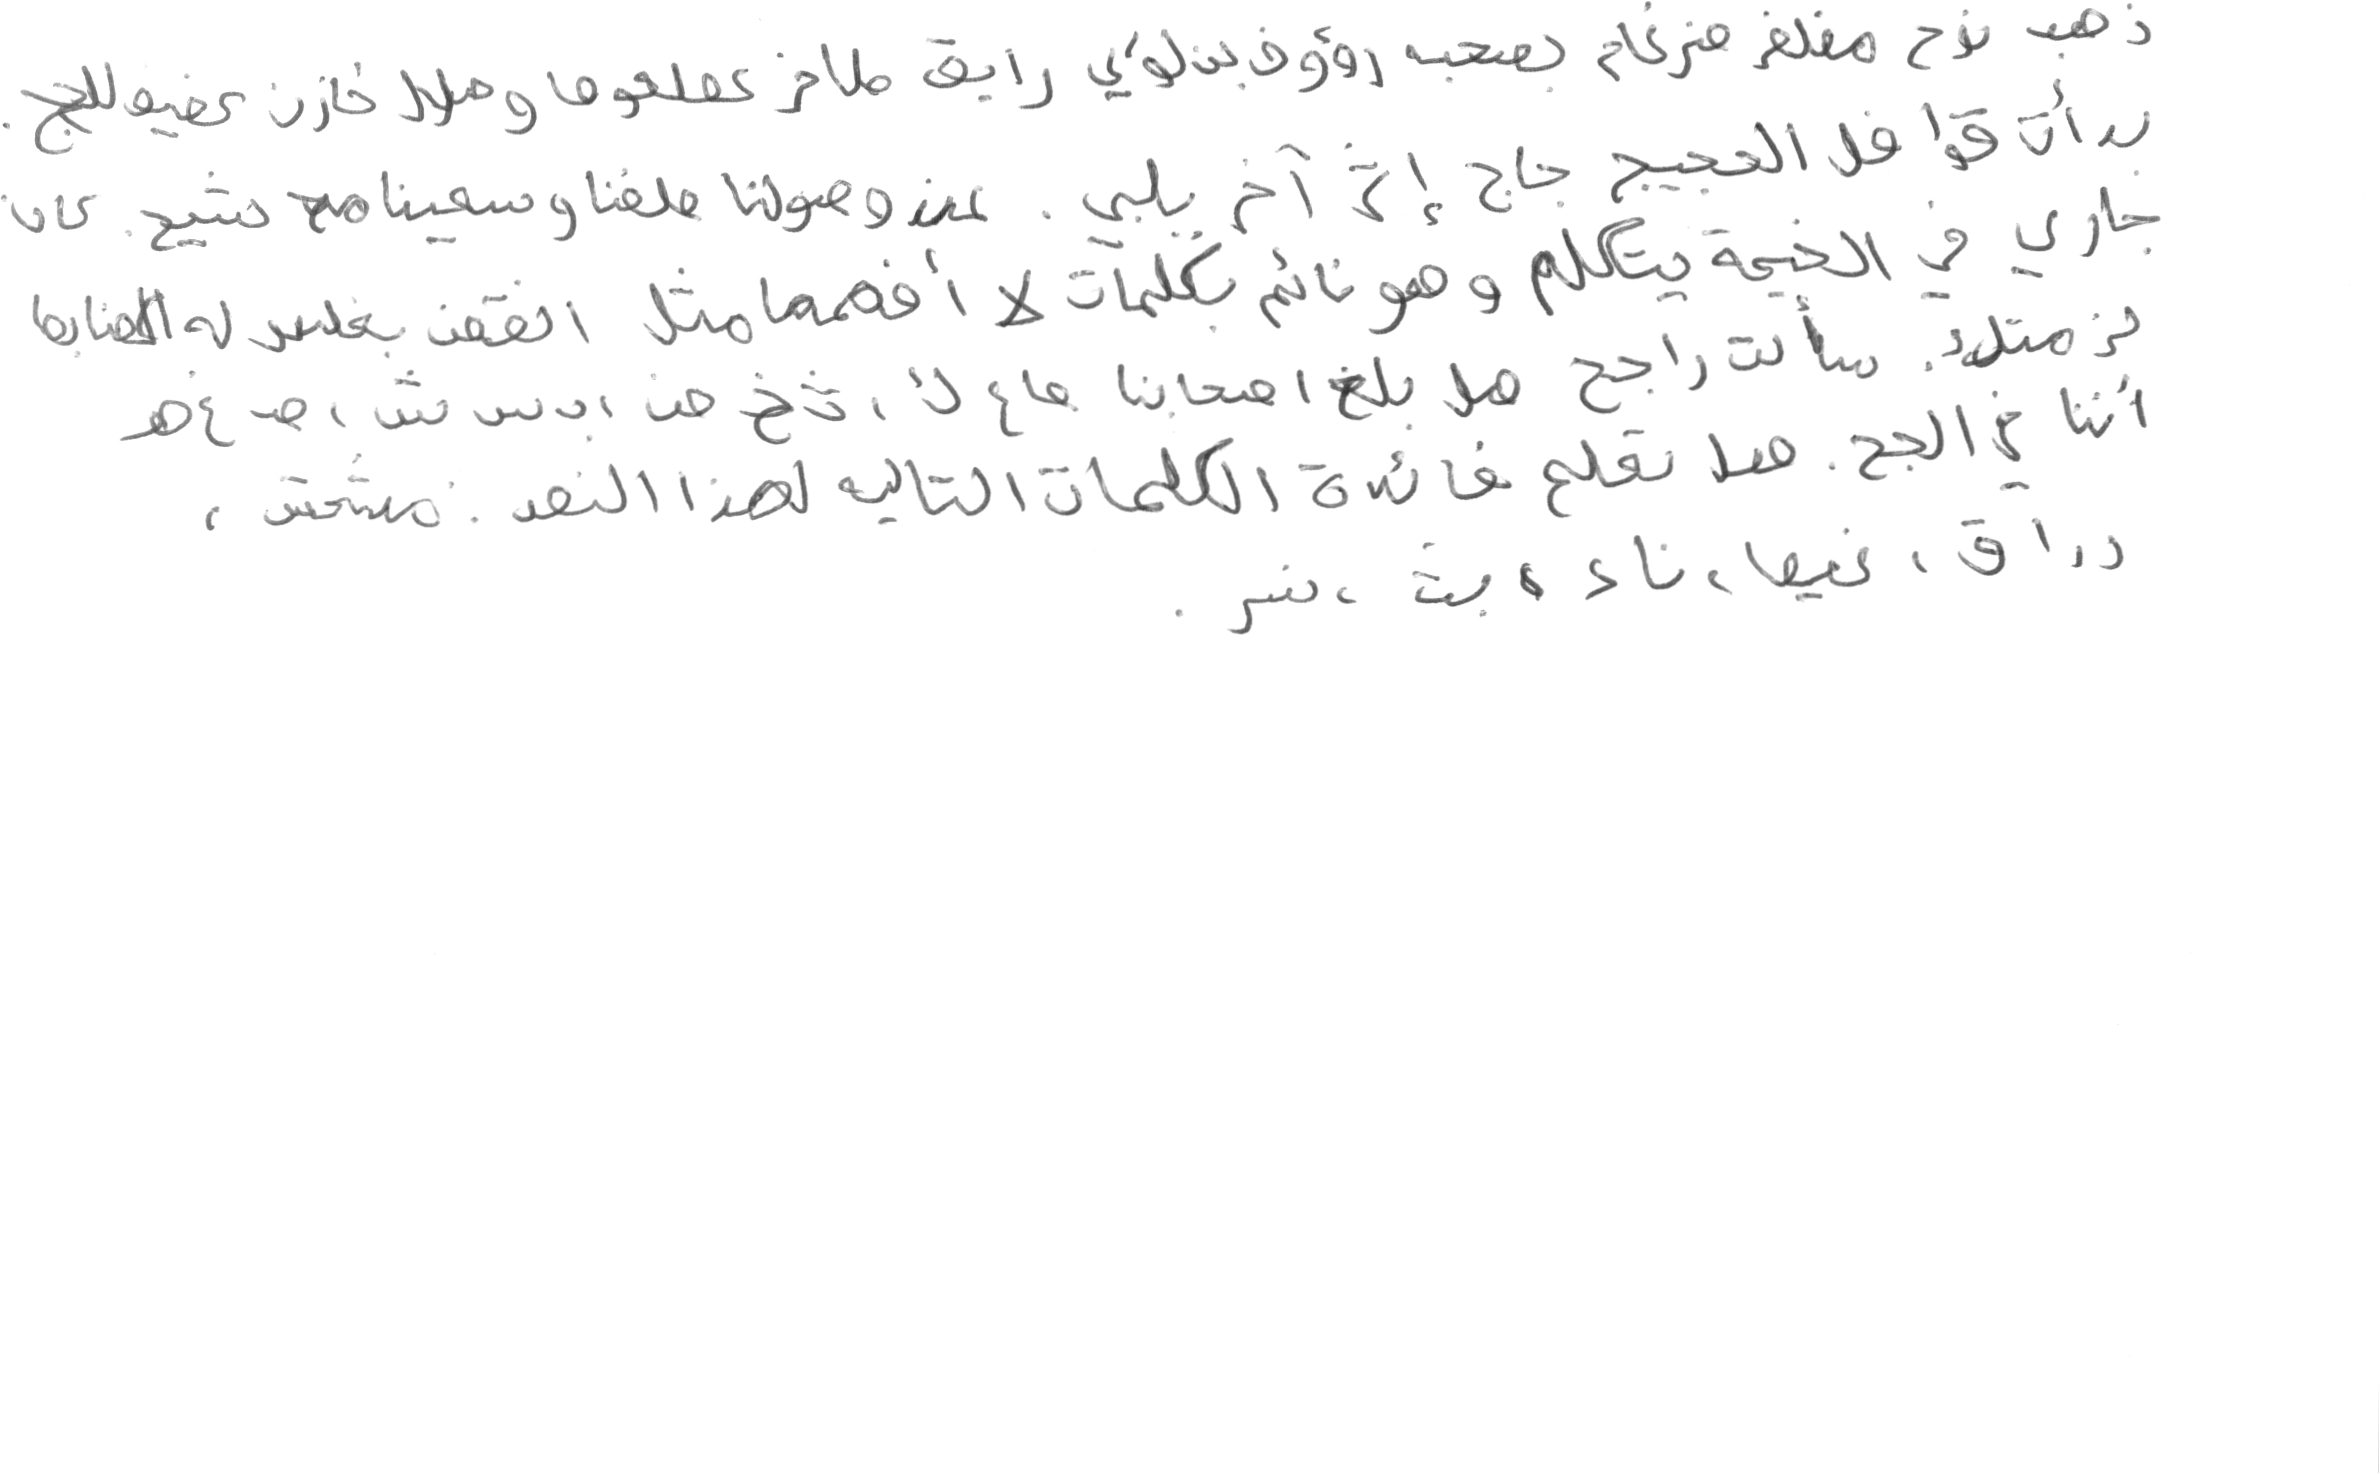 ذهب نوح مظفر ضرغام بصحبه رؤوف بن لؤي رايق ظافر عطعوط وهلال خازن عفيف للحج.
بدأت قوافل الحجيج حاج إثر آخر يلبي. عند وصولنا طفنا وسعينا مع شيخ. كان
جاري في الخيمة يتكلم وهو نائم بكلمات لا أفهمها مثل افقفت بغلس له الضابط
لزمتك. سألت راجح هل بلغ اصحابنا هاع لأ، ثخ ض ،ب س ش ،ص ع هـ
أننا في الحج. هل تعلم فائدة الكلمات التاليه لهذا النص. مشمش ،
دراق ، غيظ، ناء ، بث ، نسر .